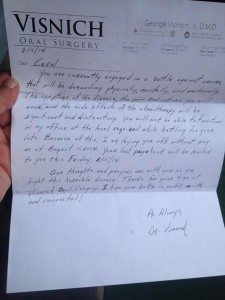 VISNICH
ORAL SURGERY
George Visnich Jr., D.M.D.
8/10/14
Dear Carol
You are currently engaged in a battle against cancer
that will be demanding physically, mentally, and emotionally.
The symptoms of the disease, the pain medications you will
need, and the side effects of the chemotherapy will be
significant and distracting. You will not be able to function
in my office at the level required while battling for your
life. Because of this, I am laying you off without pay
as of August 11, 2014. Your last paycheck will be mailed
to you this Friday, 8/15/14.
Our thoughts and prayers are with you as you
fight this horrible disease. Thanks for your time at
Visnich Oral Surgery. I hope your battle is swift
and successful!
As Always,
Dr. Visnich